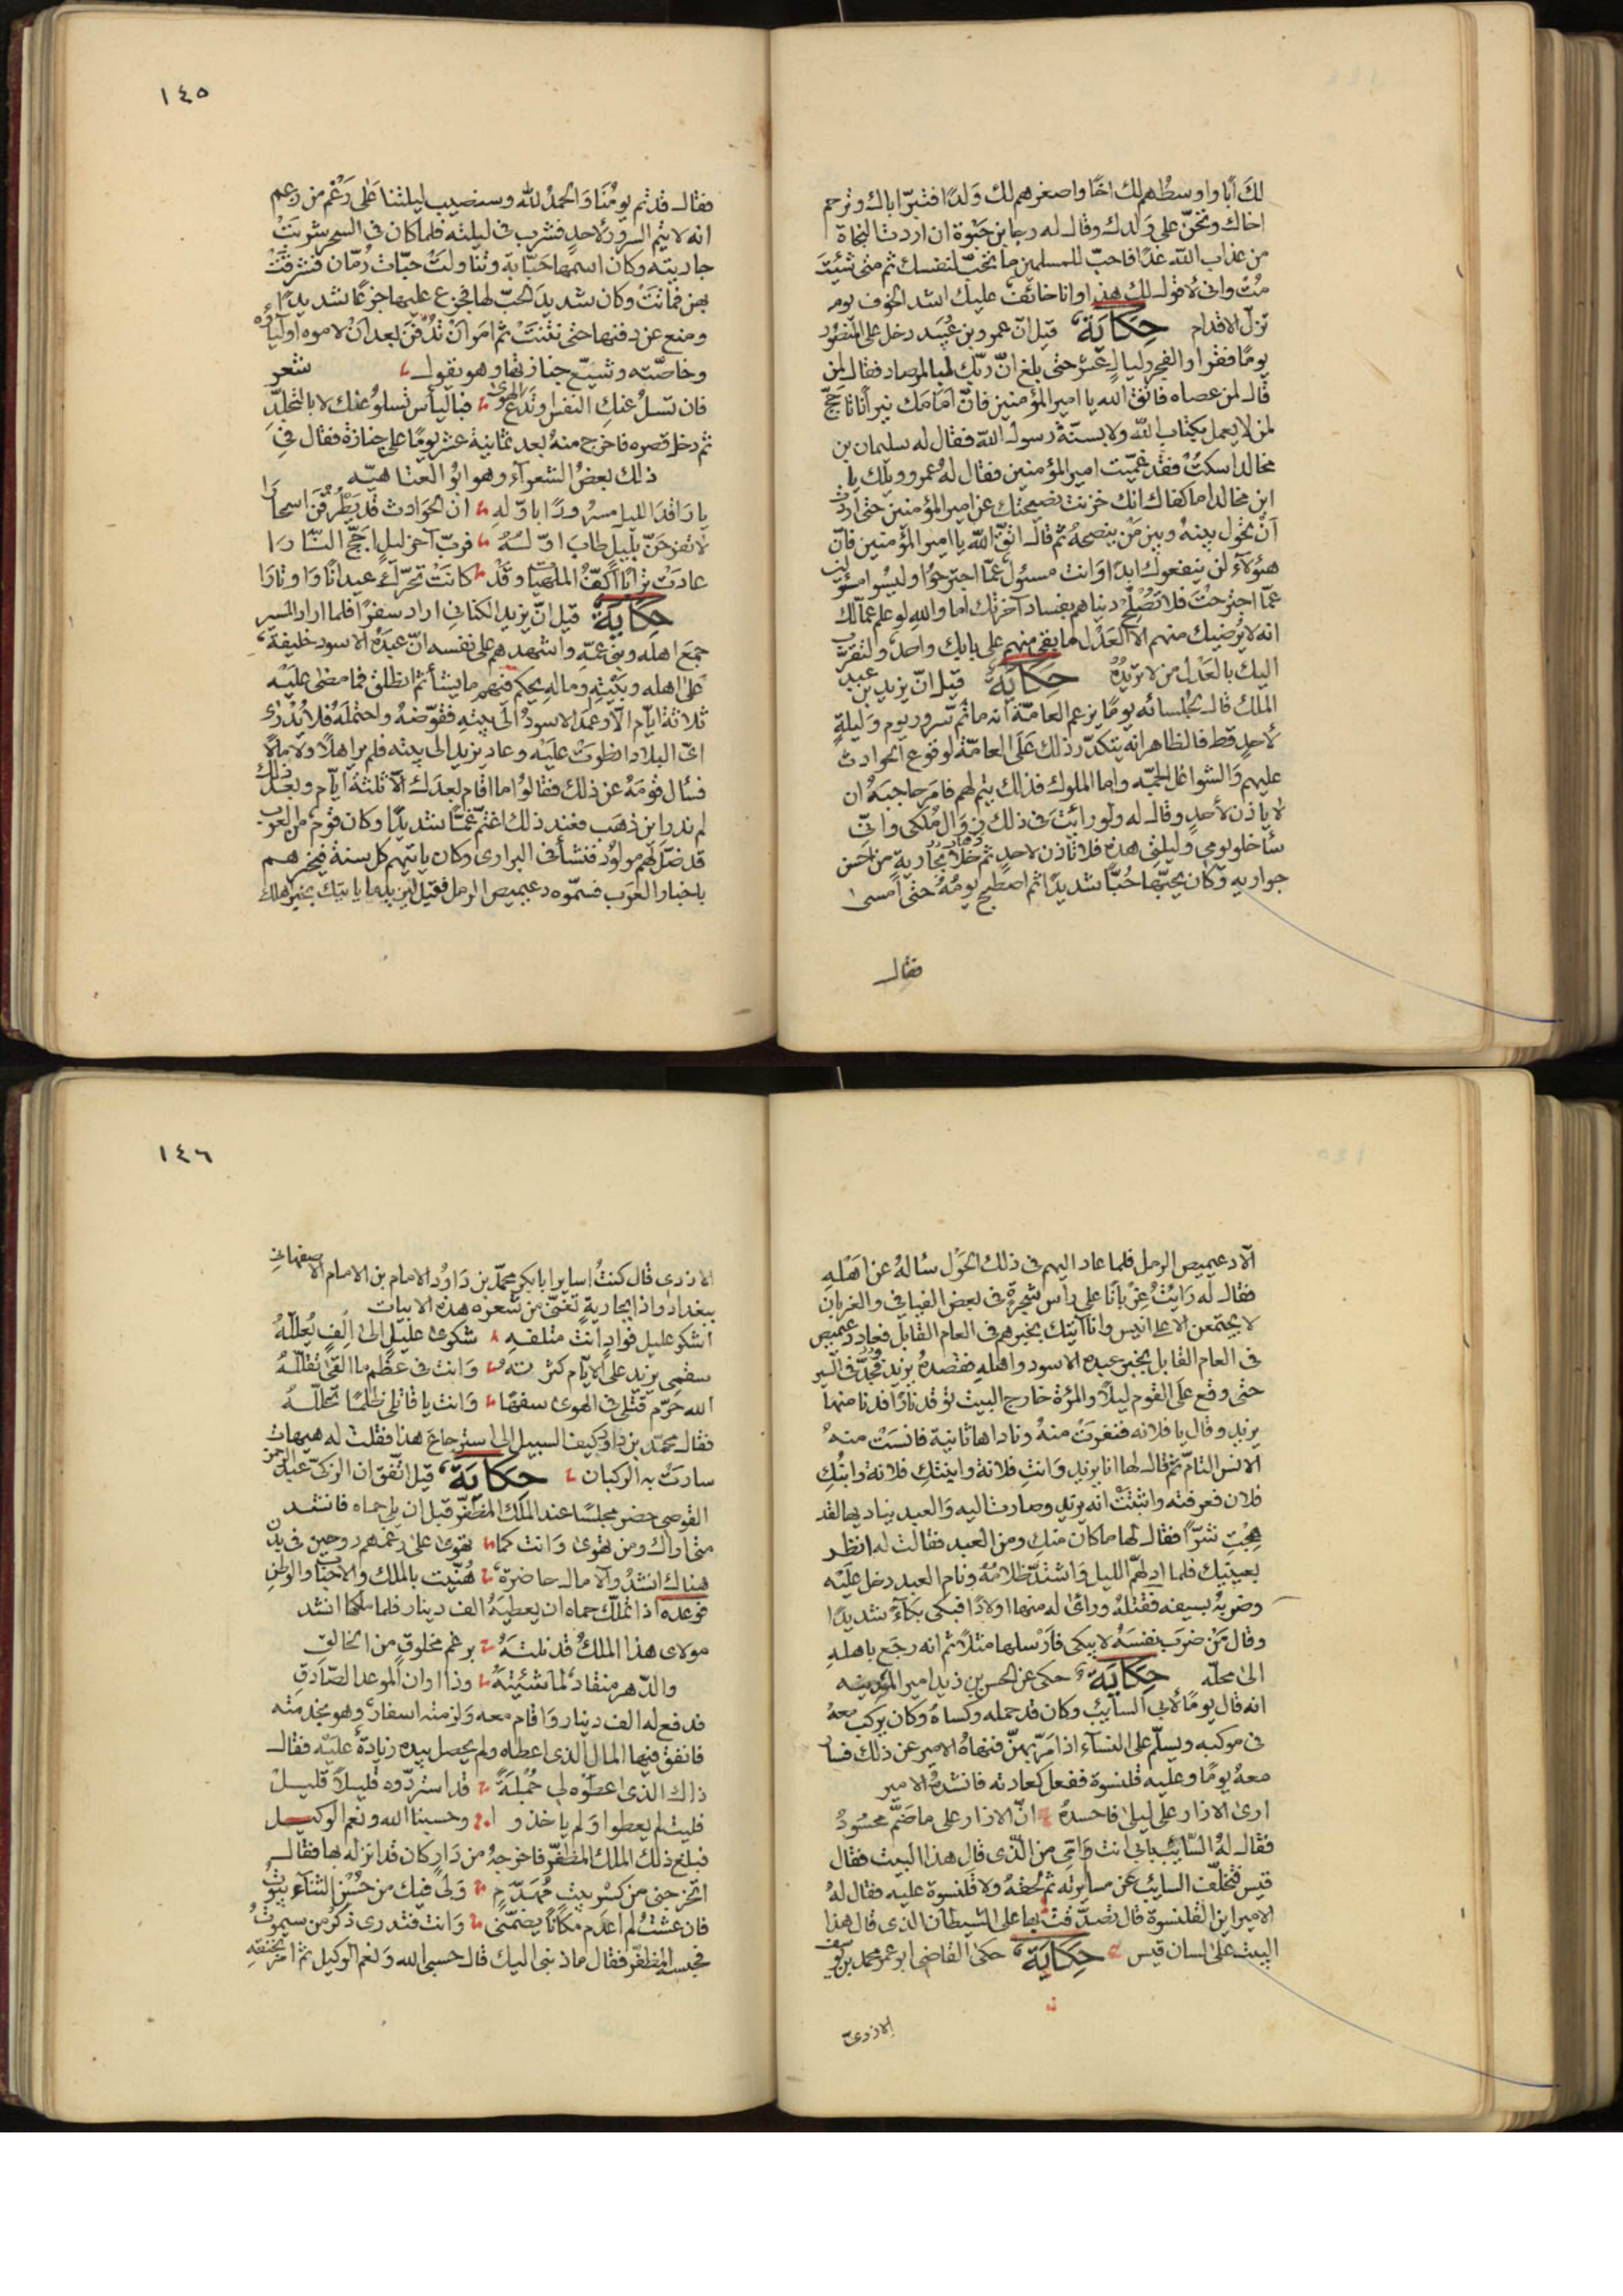 لكَ أبًا واوسطُهم لك اخًا واصغرهم لك وَلدًا فتبرّ اباك وترحم
اخاك وتحنّ على وَلدك وقال له رجا بن حَيْوة ان اردت النجاة
من عذاب الله غدًا فاحبّ للمسلمين ما تحبّ لنفسك ثم متى شئتَ
مُتْ وانى لاقول لك هذا وانا خائفٌ عليك اشد الخوف يوم
تزلّ الاقدام حِكَايَة قيل انّ عمرو بن عُبَيد دخل على المنصُور
يومًا فقرا والفجر وليالٍ عشر حتى بلغ انّ ربّك لبالمرصاد فقال لمن
قال لمن عصاه فاتق الله يا امير المؤمنين فانّ امامَك نيرانًا تاجّج
لمن لا يعمل بكتاب الله ولا بسنّة رسول الله فقال له سليمان بن
مخالد اسكتْ فقد غمّيت امير المؤمنين فقال لهُ عمرو ويلك يا
ابن مخالد اما كفاك انك خزنت نصيحتك عن امير المؤمنين حتى اردتَ
أنْ تحُول بينهُ وبين مَنْ ينصحهُ ثم قال اتقّ الله يا امير المؤمنين فانّ
هٰؤلآءِ لن ينفعوك ابدًا وَانت مسئول عمّا اجترحوُا وليسُوا مسئولين
عمّا اجترحْتَ فلا تُصْلِحْ دنياهم بفساد آخرتك اما واللهِ لو علم عمّالك
انه لا يُرضيك منهم الا العَدْل ما بقى منهم على بابك واحدٌ ولتقرّب
اليك بالعَدْل من لا تريْدُهُ حِكايَة قيل انّ يزيد بن عبد
الملك قال لجُلسائه يومًا يزعم العامّة انه ما تمّ سرور يوم وَليلةٍ
لاحدٍ قط فالظاهر انه يتكدّر ذلك عَلَى العامّة لوقوع الحوادث
عليهم وَالشواغل الجمّه واما الملوك فذلك يتم لهم فامَر حاجبَهُ ان
لا ياذن لأحدٍ وقال له ولو رايْتَ فى ذلك زوَال مُلكى وانّى
سأخلو يومى وليلتى هذه فلا تاذن لاحدٍ ثم خَلا بجاريةٍ من احَسن
جواريه وَكان يحبّها حُبًّا شديدًا ثم اصطبح يومُهُ حتى أمسى
فقال
١٤٥
فقال قد تم يومُنا وَالحمدُ لله وسنصيب ليلتنا عَلى رَغْم من زعم
انه لا يتم السرورُ لاحدٍ فشرب فى ليلته فلما كان فى السحر شربَتْ
جاريته وكان اسمها حَبّابة وتناولَتْ حبّات رُمّان فشرقَتْ
بهن فماتَتْ وكان شديدَ الحبّ لها فجزع عليها جزعًا شديدًا
ومنع عن دفنها حتى نتنتْ ثم امَر انْ تُدفَن بعد انْ لاموه اوليَاؤُه
وخاصّته وشيّع جنازتها وهو يقول شعر
فان تسلُ عنكِ النفسُ وتدَع الهوَىٰ فباليأسِ تسلوُ عنك لا بالتجلّدِ
ثم دخل قصره فاخرج منهُ بعد ثمانية عشر يومًا على جنازة فقال فى
ذلك بعضُ الشعرآءِ وهو ابوُ العَتاهيّه
يا رَاقدَ الليل مسرُورًا باوّلهِ ان الحَوَادث قد يَطْرُقْنَ اسحارَا
لا تفرَحَنّ بليلٍ طابَ اوّلهُ فربّ آخر ليلٍ اجّج النّارَا
عادَتْ ترابًا اكفّ الملهيَات وقَدْ كانَتْ تحرّكُ عيدانًا وَاوتارَا
حِكَايَةٌ قيل انّ يزيد الكنانى اراد سفرًا فلما اراد المسير
جمَع اهلَه وبنى عمّه واشهدهم على نفسه انّ عبدَهُ الاسودَ خليفة
عَلى اهله وبَيْتِهِ ومالِهِ يحكم فيهم ما يشأ ثم انطلق فما مضى عليْه
ثلاثة ايام الّا وعمَد الاسودُ الى بيتهِ فقوّضهُ واحتملَهُ فلا يُدْرى
اىّ البلاد انطوَتْ عليَه وعاد يزيد الى بيته فلم ير اهلًا ولا مالًا
فسأل قومَهُ عن ذلك فقالوُا ما اقام بعدَك الّا ثلثةَ ايّام وبعد ذلك
لم ندرِ اين ذهَب فعند ذلك اغتمّ غمًّا شديدًا وكان قومٌ من العرب
قد ضَلّ لهم مولوُد فنشأ فى البرارى وكان ياتيهم كل سنة فيخبرهم
باخبار العرَب فسمّوه دعيميص الرمل فقيل ليزيد ما ياتيك بخبر اهلك
الّا دعيميص الرمل فلما عاد اليهم فى ذلك الحَوْل سألهُ عن اَهْلهِ
فقال له رَايْتُ غِرْبانًا على راس شجرةٍ فى بعض الفيافي والغربان
لا يجتمعن الا على انيس وانا آتيك بخبرهم فى العام القابل فعاد دعيميص
فى العام القابل بخبر عبده الاسود واهلهِ فقصدهُ يزيد فجدّ فى السّير
حتى وقع عَلَى القوم ليلًا والمرْة خارج البيت توقد نارًا فدنا منها
يزيد وقال يا فلانه فنفرَتْ منهُ وناداها ثانية فانسَتْ منهُ
الانس التامّ ثم قال لها انا يزيد وَانتِ فلانة وابنتكِ فلانة وابنُكِ
فلان فعرفته واثبتَتْ انه يزيد وصارت اليه وَالعبد يناديها لقد
هِجْتِ شرًّا فقال لها ما كان منكِ ومن العبد فقالت له انظر
بعينيك فلما ادلهمّ الليل وَاشتدّ ظلامُهُ ونام العبد دخل عَليْه
وضربهُ بسيفه فقتلهُ ورأى له منها اولادًا فبكى بكآءً شديدًا
وقال مَنْ ضرَب نفسَهُ لا يبكى فارْسلها مثلًا ثم انه رجَع باهلهِ
الى محلّه حِكَايَة حكى عن الحسن بن زيد امير المدينه
انه قال يومًا لأبي السايب وكان قد حمله وكساهُ وَكان يركب معهُ
فى موكبه ويسلّم على النسآءِ اذا مَرّ بهنّ فنهاهُ الامير عن ذلك فسار
معهُ يومًا وعليه قلنسوة ففعل كعادته فانشدهُ الامير
ارىٰ الازار على ليلىٰ فاحسدهُ انّ الازار على ما ضَمّ محسُودُ
فقال لهُ السّايب بابي انت وَامّى من الّذى قال هذا البيت فقال
قيس فتخلّف السايب عن مسايرته ثم لحقهُ ولا قلنسوة عليه فقال لهُ
الامير اين القلنسوة قال تصدّقتُ بها على الشيطان الذى قال هذا
البيت على لسان قيس حِكَايَة حكى القاضى ابو عمر محمد بن يوسف
الازدىّ
١٤٦
الازدى قال كنتُ اساير ابا بكر محمّد بن دَاوُد الامام بن الامام الاصفهانى
ببغداد واذا بجاريةٍ تغنّى من شعره هذه الابيات
اشكو عليل فوادٍ انتَ متلفهِ شكوىٰ عليْلٍ الىٰ اِلفٍ يُعَلّلهُ
سقمِى يزيد على الايّام كثرتهُ وَانت فى عظْمِ ما القىٰ تقللّهُ
الله حَرّم قتلى فى الهوىٰ سفهًا وَانت يا قاتلى ظلمًا تحللّهُ
فقال محمّد بن داود كيف السبيل الى استرجاع هذا فقلت له هيهات
سارتْ به الركبان حِكَايَة قيل اتّفق ان الزكىّ عبد الرحمن
القوصى حضر مجلسًا عند الملك المظفّر قبل ان يلى حماه فانشد
متى اراك ومن تهوىٰ وَانت كما تهوىٰ على رغمهم روحين فى بدن
هناك انشدُ وَالآمال حاضرة هُنّيت بالملك والاحبابِ والوطنِ
فوعده اذا تملّك حماه ان يعطيَهُ الف دينار فلما ملكها انشد
مولاى هذا الملكُ قد نلتهُ برغم مخلوقٍ من الخالقِ
والدّهر منقادٌ لما شئتهُ وذا اوان الموعد الصّادقِ
فدفع له الف دينار وَاقام معه وَلزمته اسفارٌ وهو بخدمته
فانفق فيها المال الذى اعطاه ولم يحصل بيده زيادةٌ عليْه فقال
ذاك الذى اعطوْه لى جُمْلَةً قد استردّوه قليلًا قليلْ
فليت لم يعطوا وَلم ياخذوا وحسبنا الله ونعم الوكيل
فبلغ ذلك الملك المظفّر فاخرجهُ من دَارٍ كان قد انزله بها فقال
اتخرجنى من كسْرِ بيتٍ مُهدّم وَلى فيك من حُسْن الثنآءِ بيُوتُ
فان عشتُ لم اعدَم مكانًا يضمّنى وَانت فتدرى ذكرُ من سيموتُ
فحبسه المظفّر فقال ما ذنبى اليك قال حسبى الله وَنعم الوكيل ثم امَر بخنقهِ